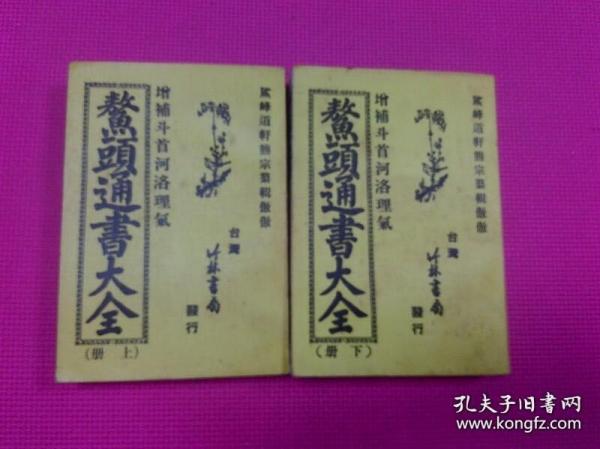 鰲頭通書大全
(上册)
增補斗首河洛理氣
台灣
竹林書局
發行
鰲峰道軒熊宗纂輯
鰲頭通書大全
(下册)
增補斗首河洛理氣
台灣
竹林書局
發行
鰲峰道軒熊宗纂輯
孔夫子旧書网
www.kongfz.com